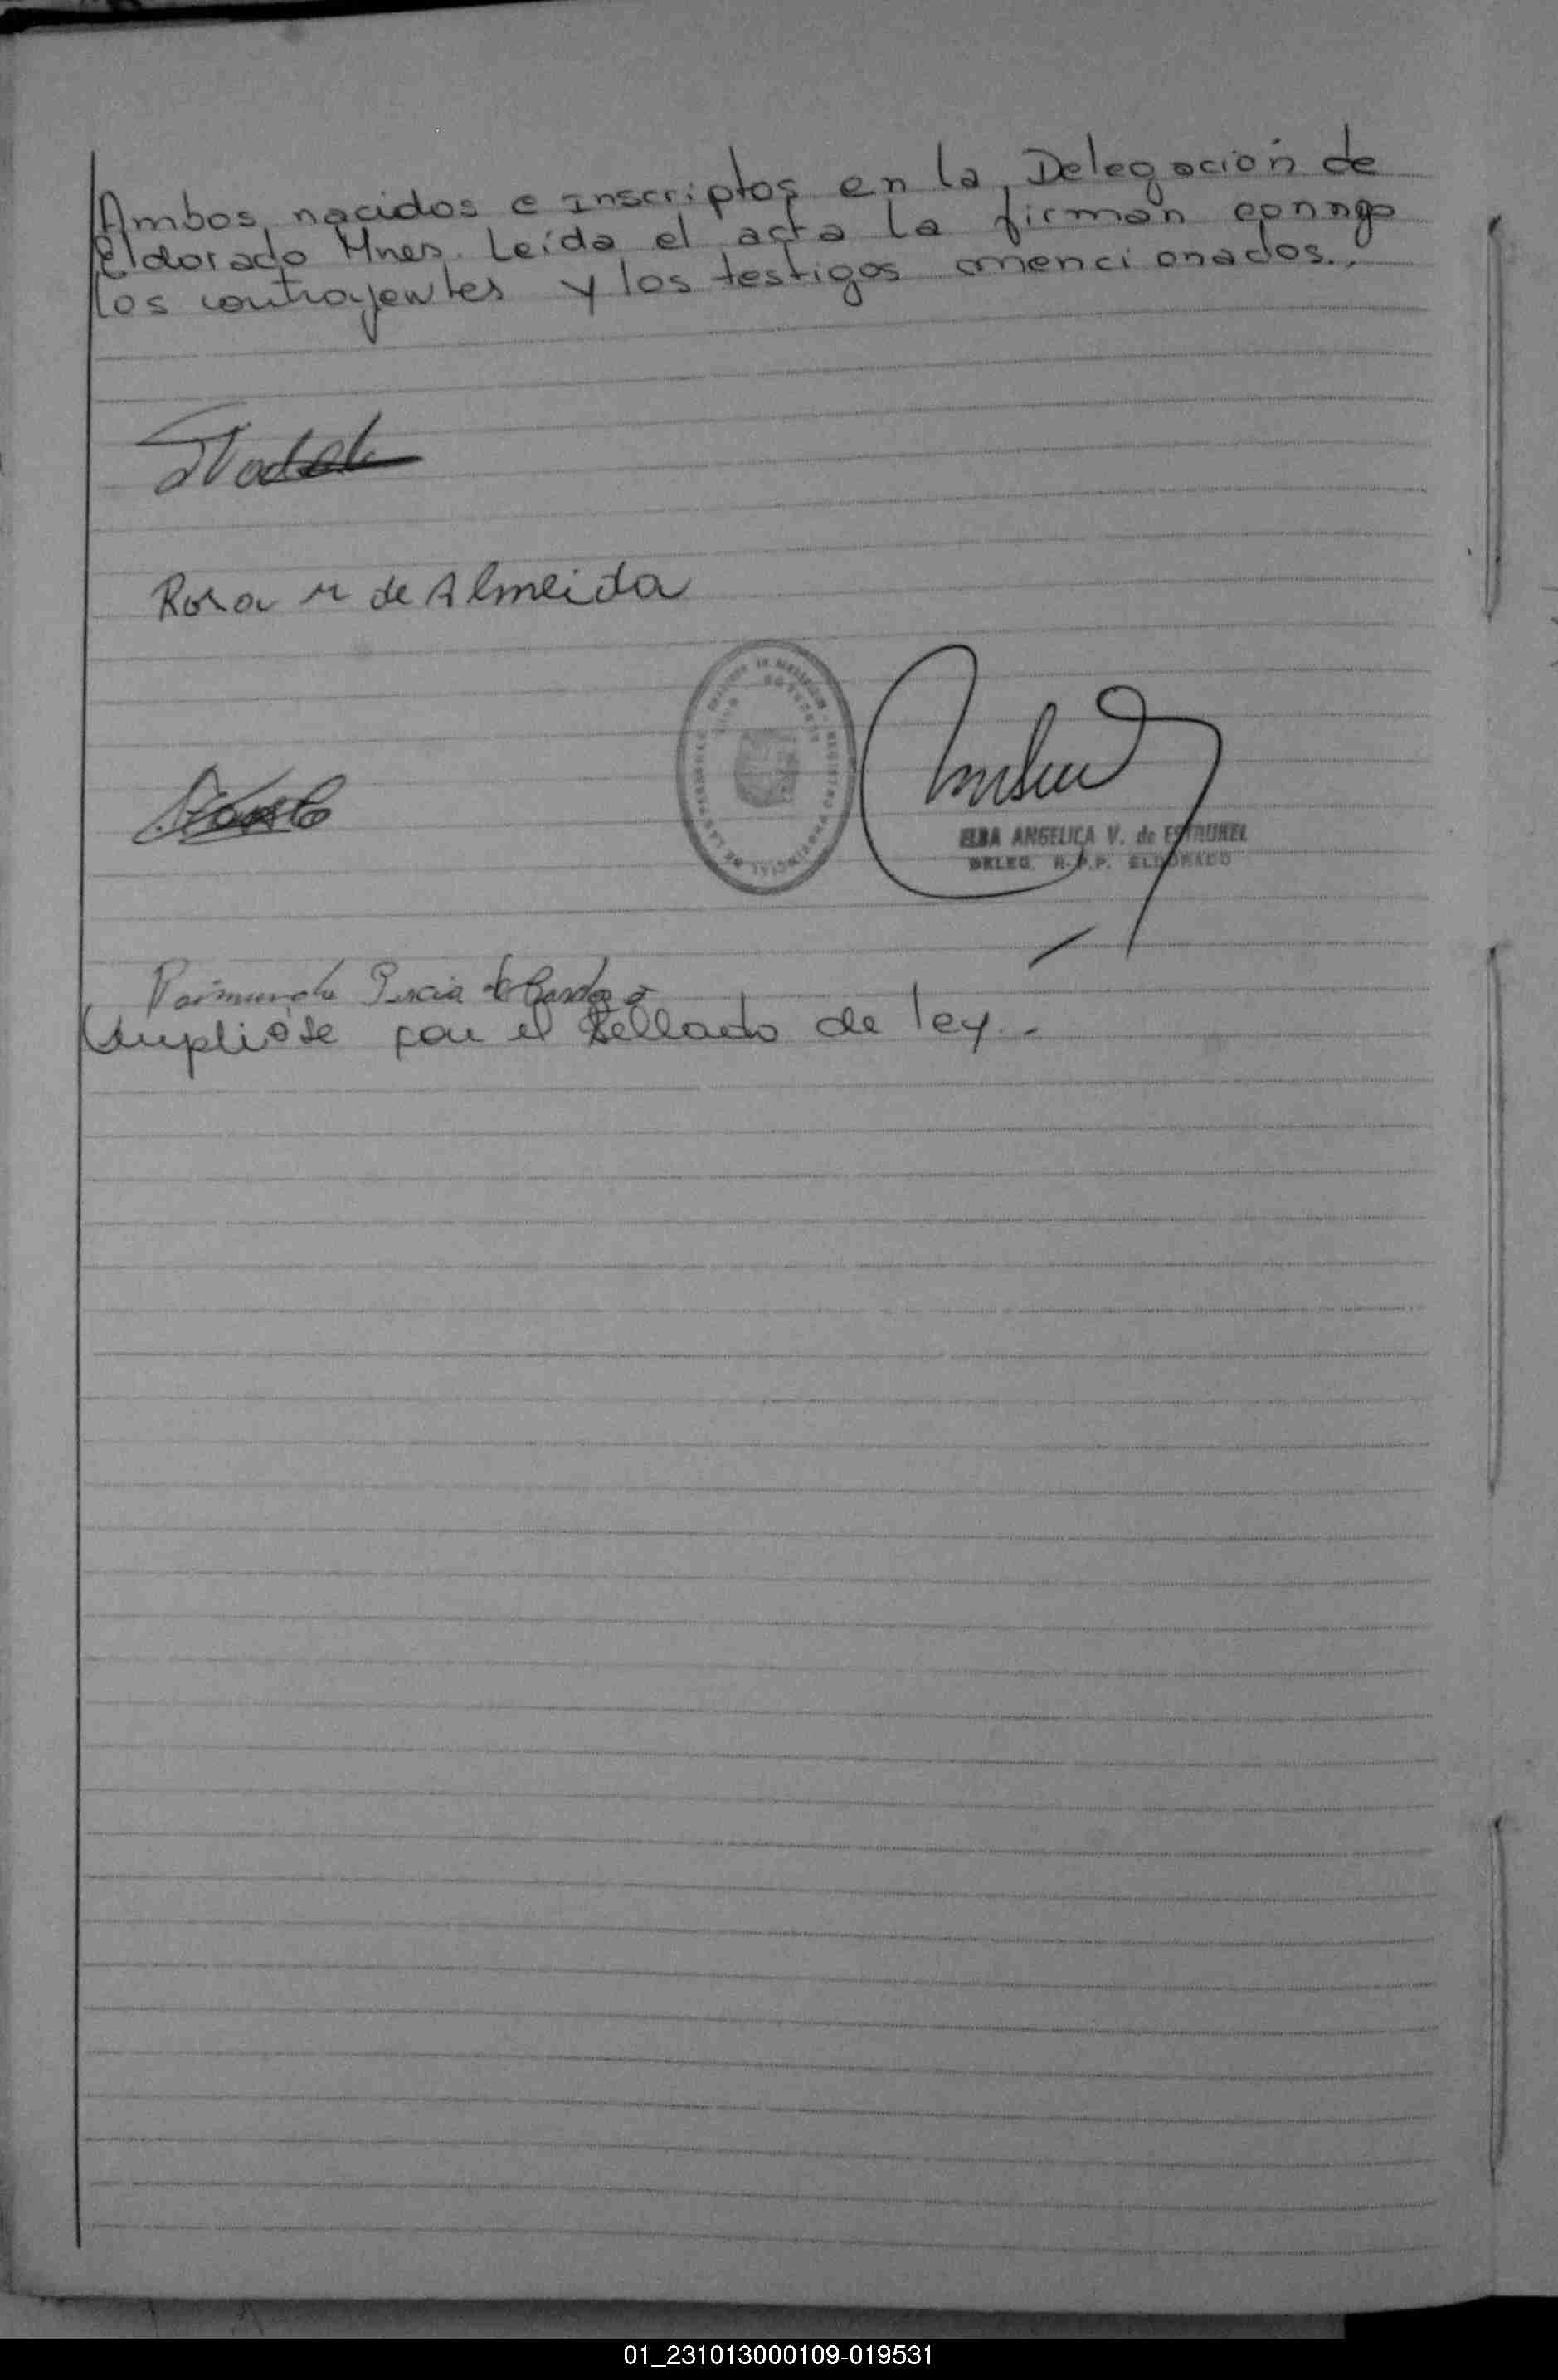 Ambos nacidos e Inscriptos en la Delegación de
Eldorado Mnes. Leída el acta la firman conmigo
los contrayentes y los testigos mencionados..
Rosa M de Almeida
ELBA ANGELICA V. de
DELEG. R.P.P. ELDORADO
de
Cumplióse con el Sellado de ley.-
01_231013000109-019531